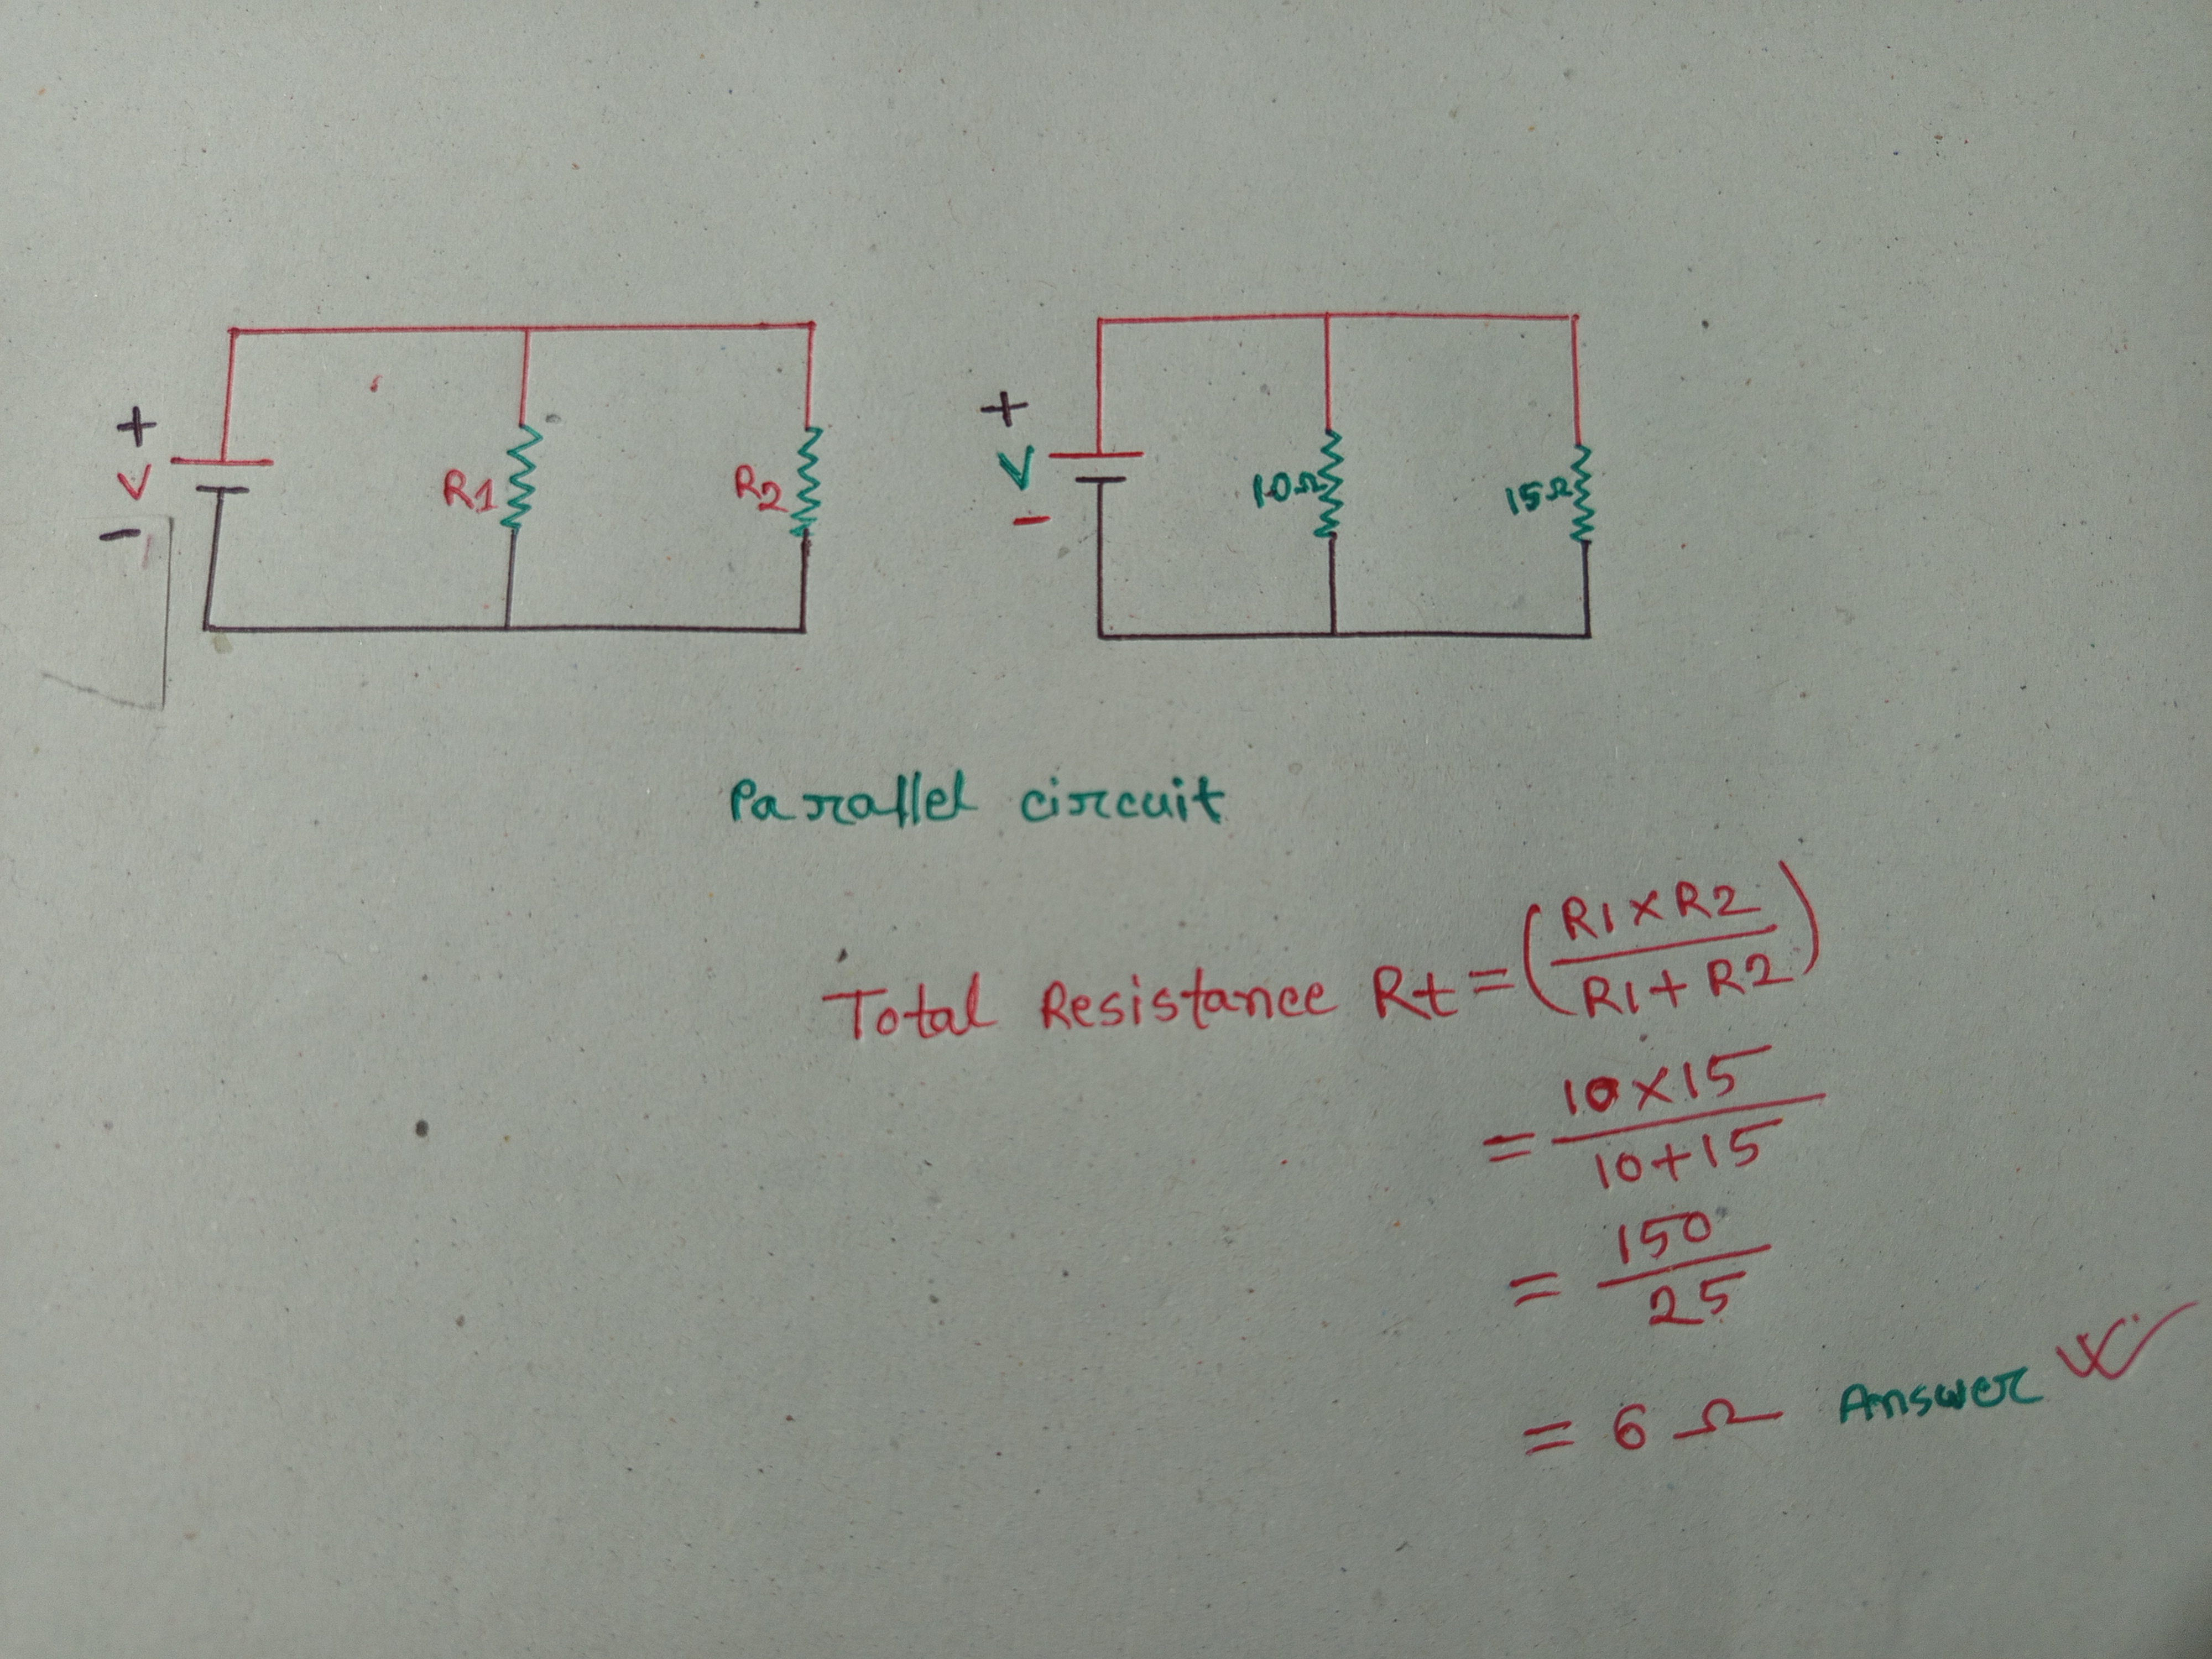 +
V
-
R1
R2
+
V
-
10Ω
15Ω
Parallel circuit
Total Resistance Rt = (R1 × R2 / R1 + R2)
= 10 × 15 / 10 + 15
= 150 / 25
= 6 Ω Answer